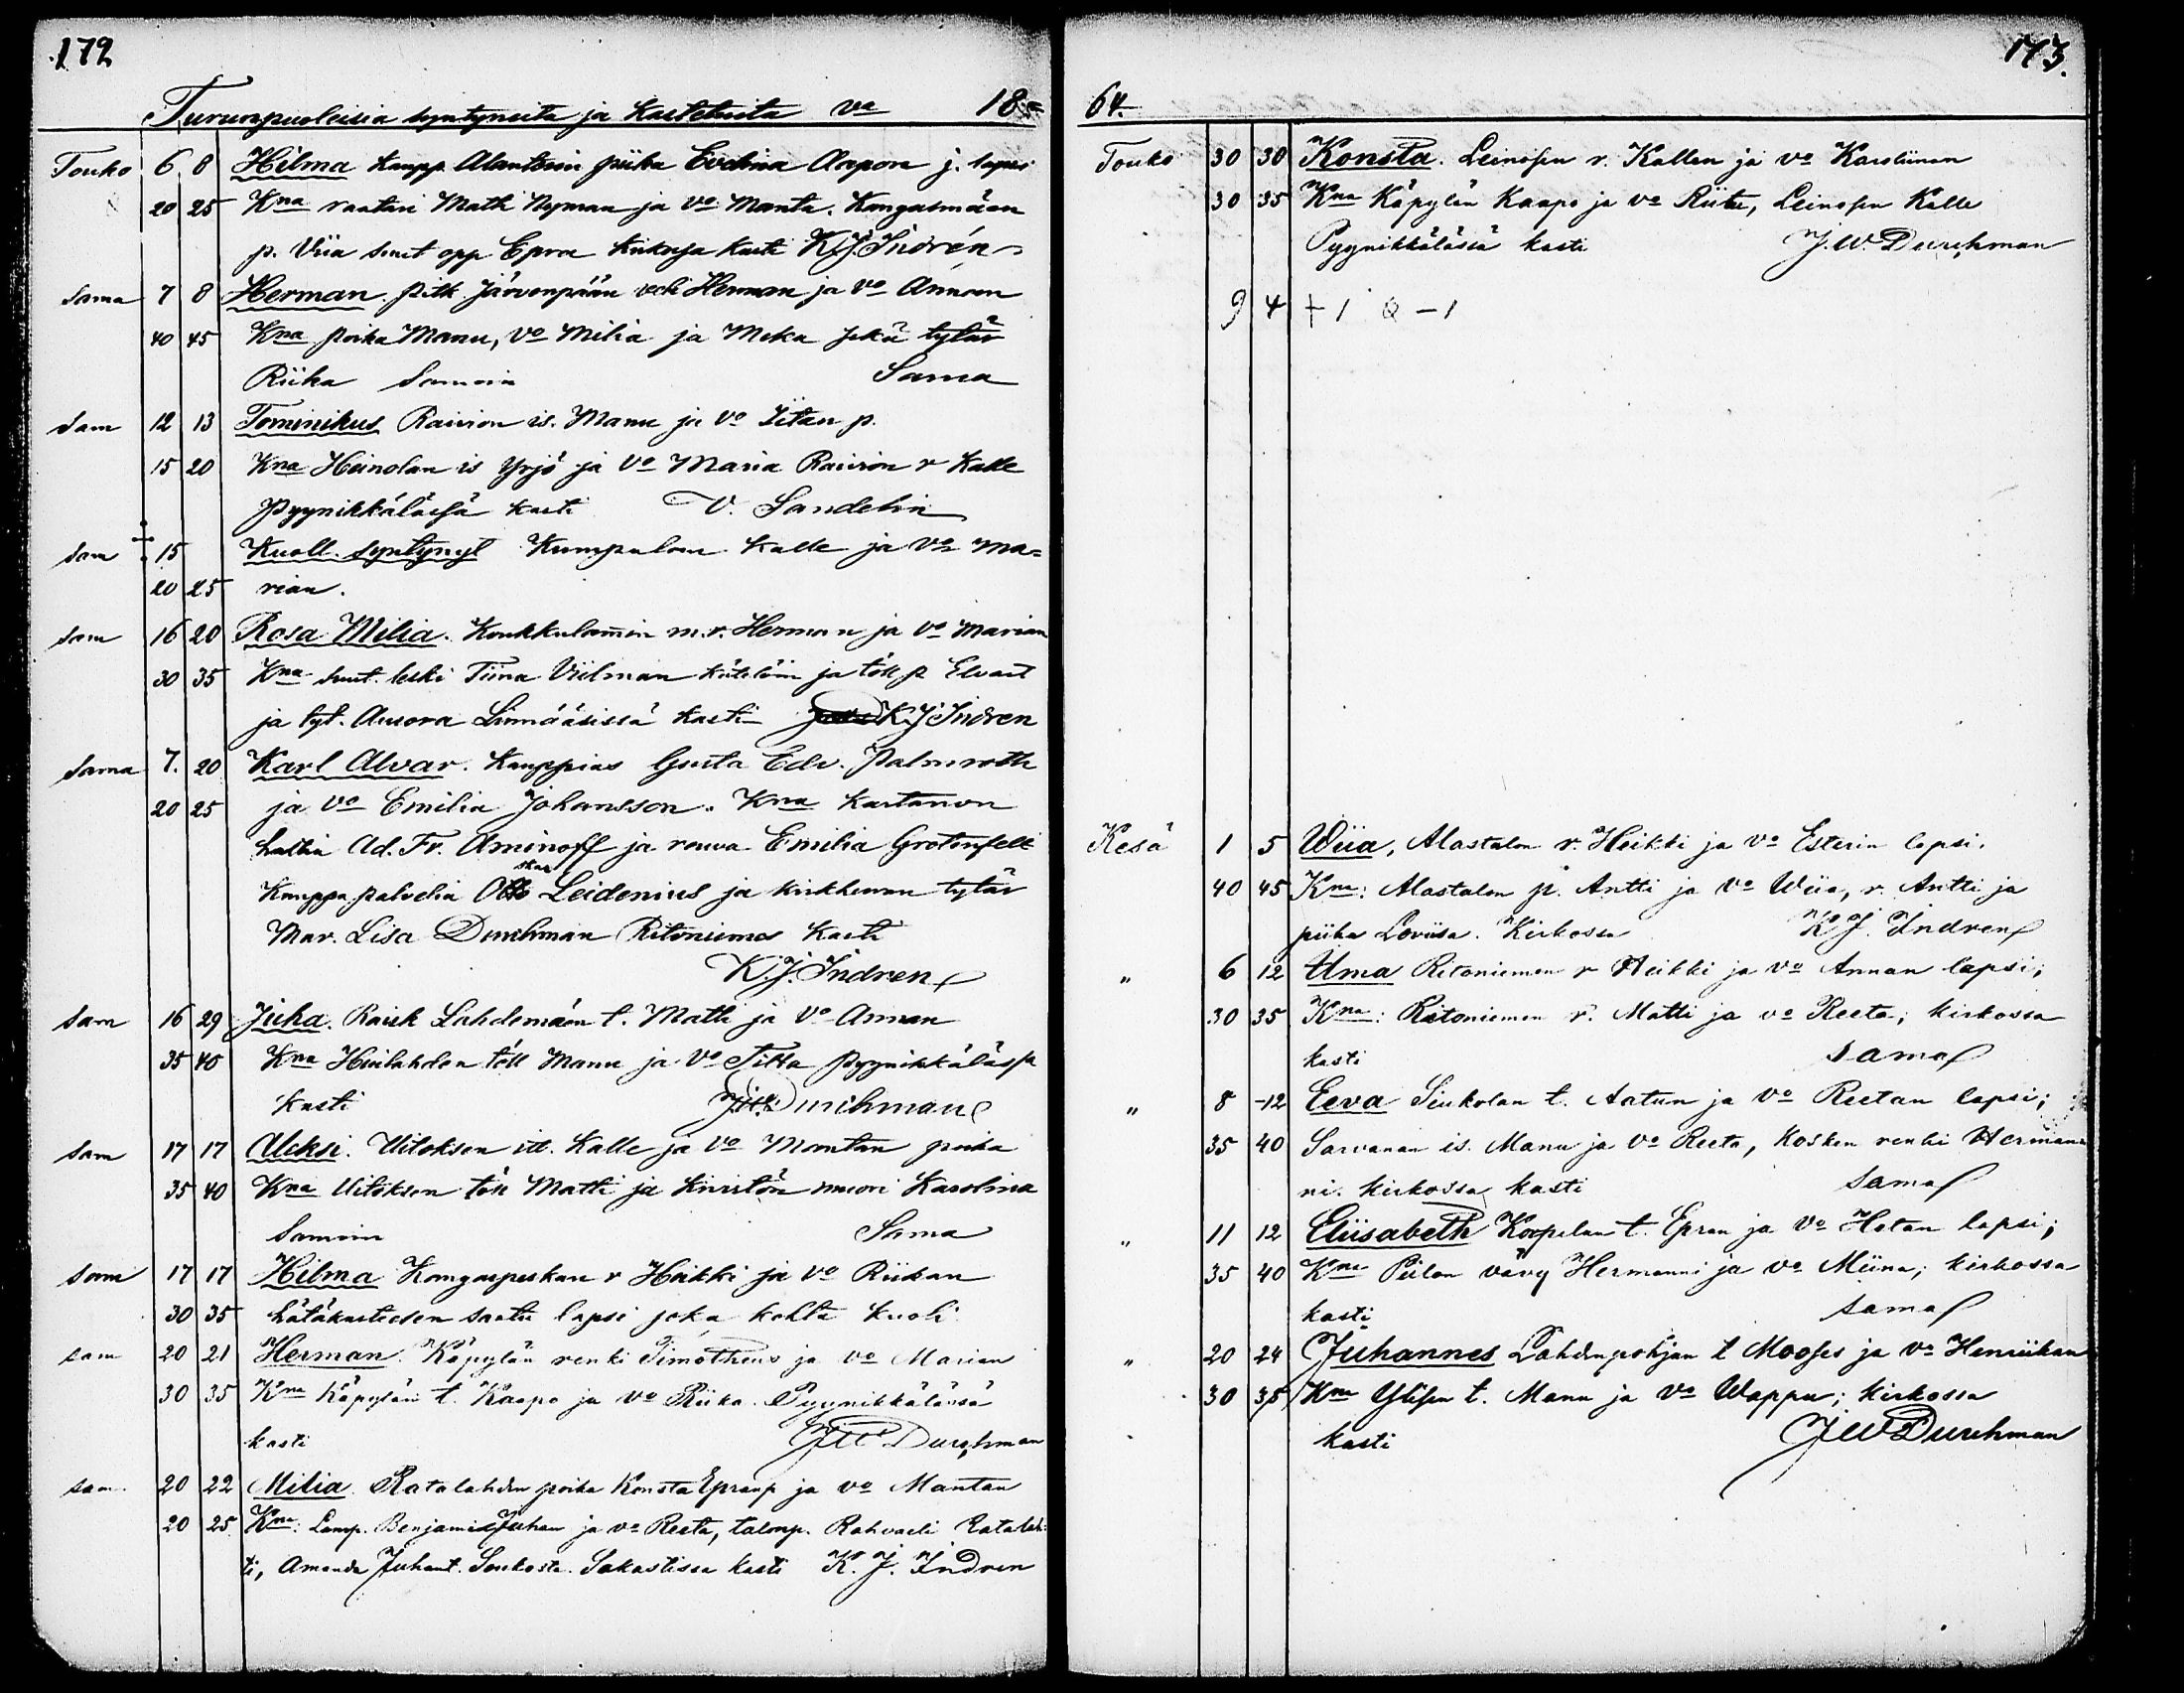 172
Turunpuoleisia syntyneitä ja kastetuita vo 18=
Touko 6 8 Hilma kaupp. piika Evelina Aapon j. lapsi
20 25 Kna raatari Matti Nyman ja vo Manta. Kangasmäen
p. Viia suut opp Epra kasti K.J. Indrén
Sama 7 8 Herman. pitk. Järvenpään Herman ja vo Annan
40 45 Kna poika Manu, vo Milia ja sekä tytär
Riika Samoin Sama
Sam 12 13 Tominikus Raivion is. Manu ja vo Iitan p.
15 20 Kna Heinolan is Yrjö ja vo Maria Raivion r Kalle
Pyynikkälässä kasti V. Sandelin
Sam 15 Kuoll. syntynyt Kumpulan Kalle ja vo Ma=
20 25 rian.
Sam 16 20 Rosa Milia. m.r. Herman ja vo Marian
30 35 Kna suut. leski Tiina Viilman ja töll p Elvart
ja tyt. Aurora kasti K J Indren
Sama 7. 20 Karl Alvar. Kauppias Gusta Edv. Palmroth
20 25 ja vo Emilia Johansson. Kna kartanon
haltia Ad. Fr. Aminoff ja rouva Emilia Grotenfelt
kauppa palvelia Oskar Leidenius ja kirkherran tytär
Mar. Lisa Durchman Ritoniemes kasti
K.J. Indren
Sam 16 29 Juha. Lahdemäen t. Matti ja vo Annan
35 40 Kna töll Manu ja vo Pyynikkäläss
kasti J.W. Durchman
Sam 17 17 Aleksi. Uitoksen itt. Kalle ja vo Mantan poika
35 40 Kna Uitoksen töll Matti ja muori Karolina
Samoin Sama
Sam 17 17 Hilma Kangaspeskan r Heikki ja vo Riikan
30 35 hätäkasteesen saatu lapsi joka kohta kuoli
sam 20 21 Herman. Käpylän renki Timotheus ja vo Marian
30 35 Kna Käpylän t. Kaapo ja vo Riika. Pyynikkälässä
kasti JW Durchman
sam. 20 22 Milia. Ratalahden poika Konsta Epranp ja vo Mantan
20 25 Kna: Lamp. Benjami Juhan ja vo Reeta, talonp. Rahvaeli Ratalah=
ti, Amanda Juhant. Soukosta. Sakastissa kasti K. J. Indren
173.
64.
Touko 30 30 Konsta. Leinosen r. Kallen ja vo Karoliinan
30 35 Kna Käpylän Kaapo ja vo Riitu, Leinosen Kalle
Pyynikkälässä kasti J.W. Durchman
9 4 +1 -1
Kesä 1 5 Wiia, Alastalon r. Heikki ja vo Esterin lapsi.
40 45 Kna: Alastalon p. Antti ja vo Wiia, r. Antti ja
piika Loviisa. Kirkossa K.J. Indren
" 6 12 Ritoniemen r Heikki ja vo Annan lapsi;
30 35 Kna: Ritoniemen r. Matti ja vo Reeta; kirkossa
kasti sama
" 8 -12 Eeva Siukolan t. Aatun ja vo Reetan lapsi;
35 40 Sarvanan is. Manu ja vo Reeta, Kosken renki Herman
ni. kirkossa kasti sama
" 11 12 Eliisabeth Koapelan t. Epran ja vo Hetan lapsi;
35 40 Kna Piilon vävy Hermanni ja vo Miina; kirkossa
kasti sama
" 20 24 Juhannes Lahdenpohjan t Mooses ja vo Henriikan
30 35 Kna Ylisen t. Manu ja vo Wappu; kirkossa
kasti JW Durchman